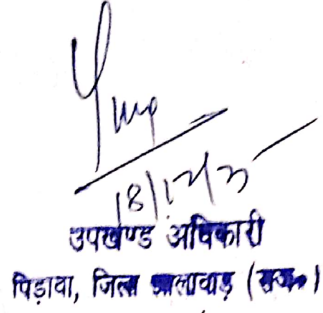 18/12/25
उपखण्ड अधिकारी
पिड़ावा, जिला झालावाड़ (राज०)